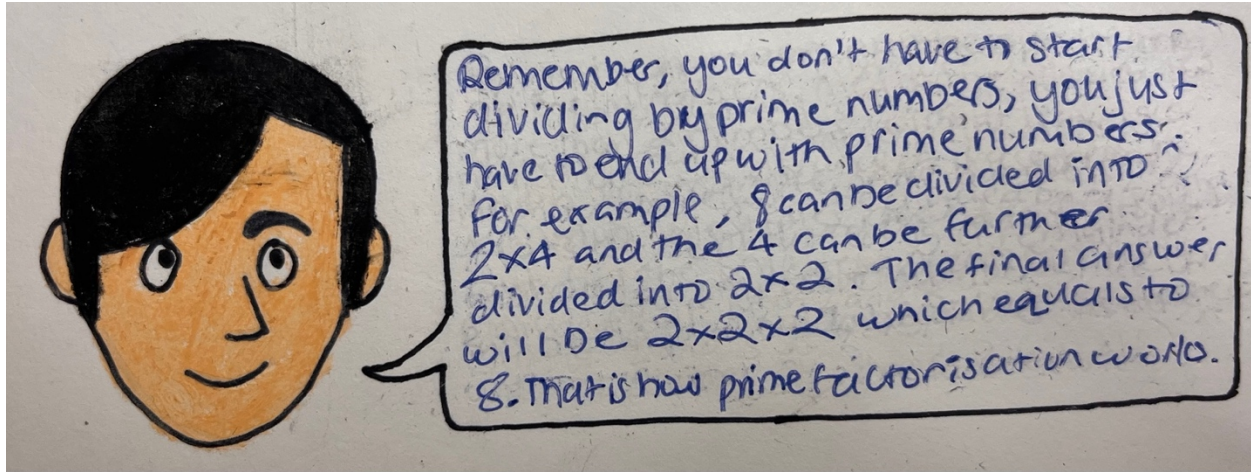 Remember, you don't have to start
dividing by prime numbers, you just
have to end up with prime numbers.
For example, 8 can be divided into
2x4 and the 4 can be further
divided into 2x2. The final answer
will be 2x2x2 which equals to
8. That is how prime factorisation works.